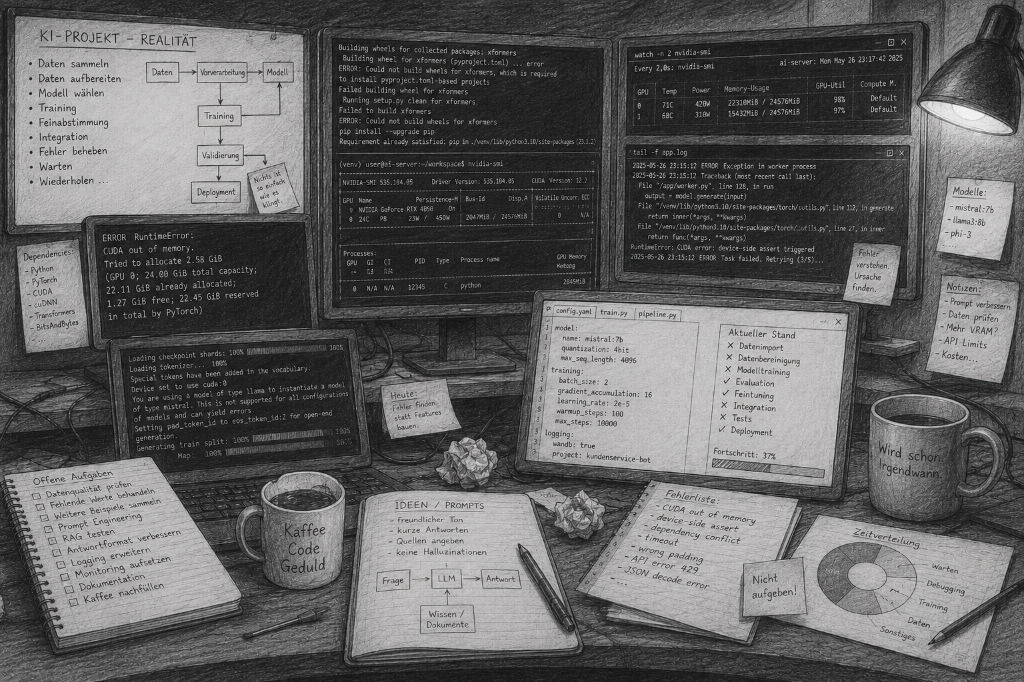 KI-PROJEKT – REALITÄT
• Daten sammeln
• Daten aufbereiten
• Modell wählen
• Training
• Feinabstimmung
• Integration
• Fehler beheben
• Warten
• Wiederholen ...
Daten
Vorverarbeitung
Modell
Training
Validierung
Deployment
Nichts ist
so einfach
wie es
klingt!
Building wheels for collected packages: xformers
Building wheel for xformers (pyproject.toml) ... error
ERROR: Could not build wheels for xformers, which is required
to install pyproject.toml-based projects
Failed building wheel for xformers
Running setup.py clean for xformers
Failed to build xformers
ERROR: Could not build wheels for xformers
pip install --upgrade pip
Requirement already satisfied: pip in ./venv/lib/python3.10/site-packages
(venv) user@ai-server:~/workspace$ nvidia-smi
NVIDIA-SMI 535.104.05 Driver Version: 535.104.05 CUDA Version: 12.2
GPU Name Persistence-M Bus-Id Disp.A Volatile Uncorr. ECC
0 NVIDIA GeForce RTX 4090 On 0
0 24C P8 23W / 450W 2047MiB / 24576MiB N/A
Processes:
GPU GI CI PID Type Process name GPU Memory
ID ID
0 N/A N/A 12345 C python 2045MiB
watch -n 2 nvidia-smi
Every 2,0s: nvidia-smi ai-server: Mon May 26 23:17:42 2025
GPU Temp Power Memory-Usage GPU-Util Compute M.
0 71C 420W 22310MiB / 24576MiB 98% Default
1 68C 310W 15432MiB / 24576MiB 97% Default
tail -f app.log
2025-05-26 23:15:12 ERROR Exception in worker process
2025-05-26 23:15:12 Traceback (most recent call last):
File "/app/worker.py", line 128, in run
output = model.generate(input)
File "/venv/lib/python3.10/site-packages/torch/utils.py", line 112, in generate
return inner(*args, **kwargs)
File "/venv/lib/python3.10/site-packages/torch/utils.py", line 27, in inner
return func(*args, **kwargs)
RuntimeError: CUDA error: device-side assert triggered
2025-05-26 23:15:12 ERROR Task failed. Retrying (3/5)...
Fehler
verstehen.
Ursache
finden.
Modelle:
- mistral:7b
- llama3:8b
- phi-3
Notizen:
- Prompt verbessern
- Daten prüfen
- Mehr VRAM?
- API Limits
- Kosten...
Dependencies:
- Python
- PyTorch
- CUDA
- cuDNN
- Transformers
- BitsAndBytes
ERROR RuntimeError:
CUDA out of memory.
Tried to allocate 2.58 GiB
(GPU 0; 24.00 GiB total capacity;
22.11 GiB already allocated;
1.27 GiB free; 22.45 GiB reserved
in total by PyTorch)
Loading checkpoint shards: 100% 100%
Loading tokenizer... 100%
Special tokens have been added in the vocabulary.
Device set to use cuda:0
You are using a model of type llama to instantiate a model
of type mistral. This is not supported for all configurations
of models and can yield errors
Setting pad_token_id to eos_token_id:2 for open-end
generation.
Generating train split: 100% 100%
Map: 100%
Heute:
Fehler finden,
statt Features
bauen.
config.yaml train.py pipeline.py
model:
name: mistral:7b
quantization: 4bit
max_seq_length: 4096
training:
batch_size: 2
gradient_accumulation: 16
learning_rate: 2e-5
warmup_steps: 100
max_steps: 10000
logging:
wandb: true
project: kundenservice-bot
Aktueller Stand
✗ Datenimport
✗ Datenbereinigung
✗ Modelltraining
✓ Evaluation
✓ Feintuning
✗ Integration
✗ Tests
✓ Deployment
Fortschritt: 37%
Wird schon.
Irgendwann.
Offene Aufgaben
☐ Datenqualität prüfen
☐ Fehlende Werte behandeln
☐ Weitere Beispiele sammeln
☐ Prompt Engineering
☐ RAG testen
☐ Antwortformat verbessern
☐ Logging erweitern
☐ Monitoring aufsetzen
☐ Dokumentation
☐ Kaffee nachfüllen
Kaffee
Code
Geduld
IDEEN / PROMPTS
- freundlicher Ton
- kurze Antworten
- Quellen angeben
- keine Halluzinationen
Frage
LLM
Antwort
Wissen /
Dokumente
Fehlerliste:
- CUDA out of memory
- device-side assert
- dependency conflict
- timeout
- wrong padding
- API error 429
- JSON decode error
- ...
Nicht
aufgeben!
Zeitverteilung
Warten
Debugging
Training
Daten
Sonstiges